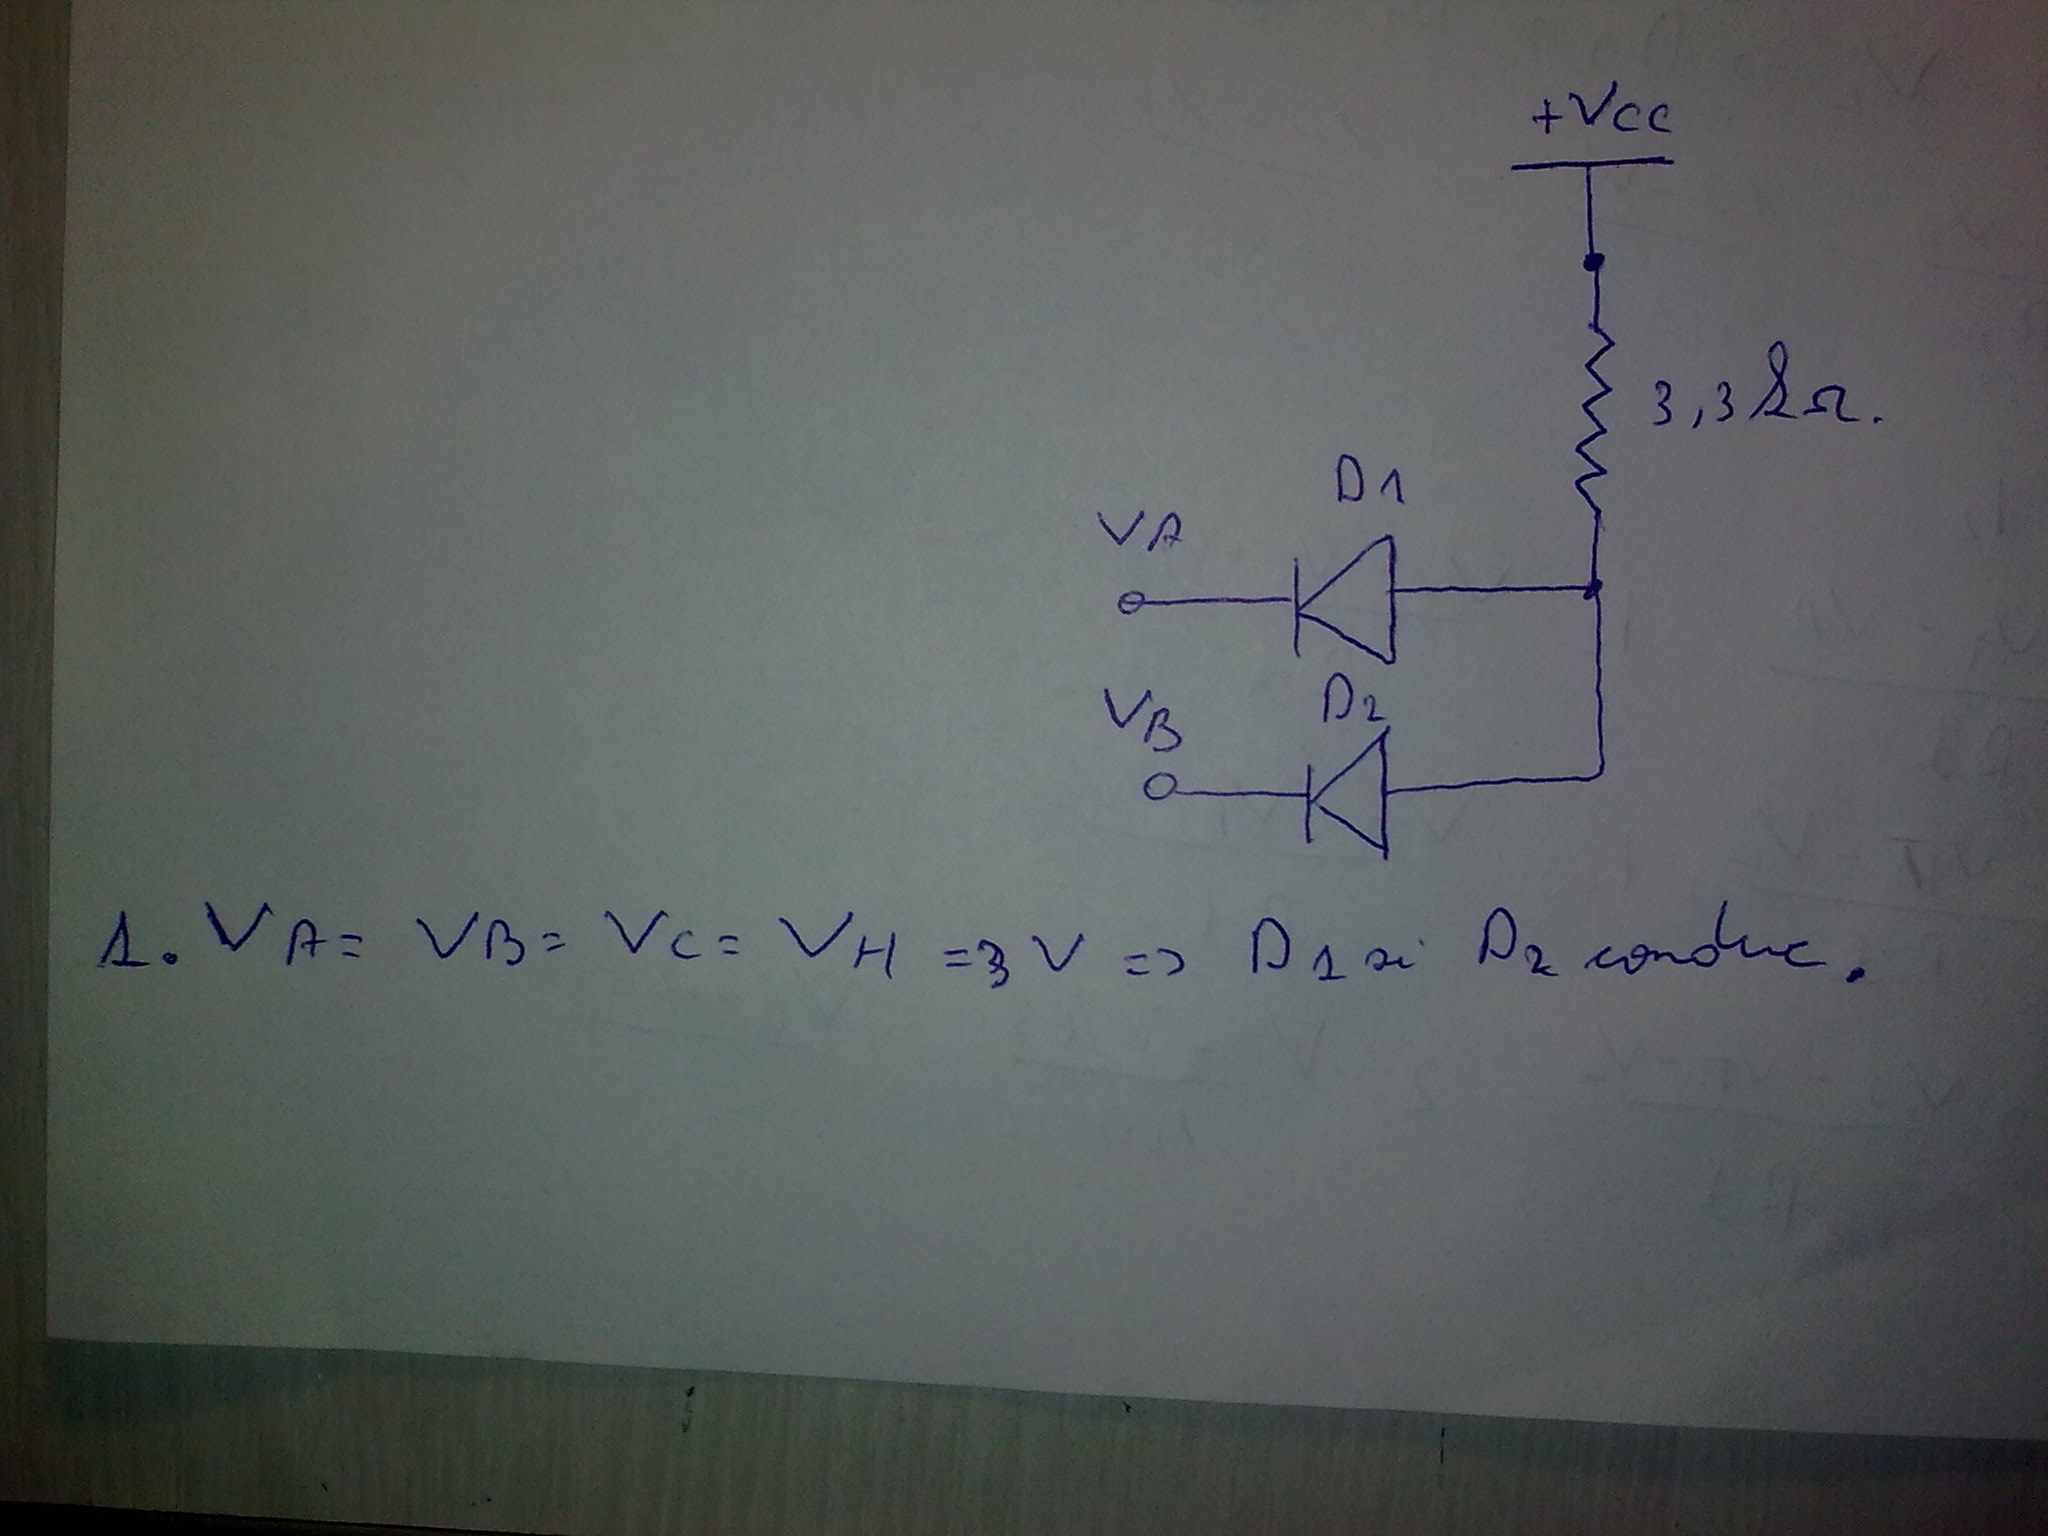 +VCC
3,3kΩ.
D1
VA
D2
VB
1. VA= VB= VC= VH =3V => D1 si D2 conduc.